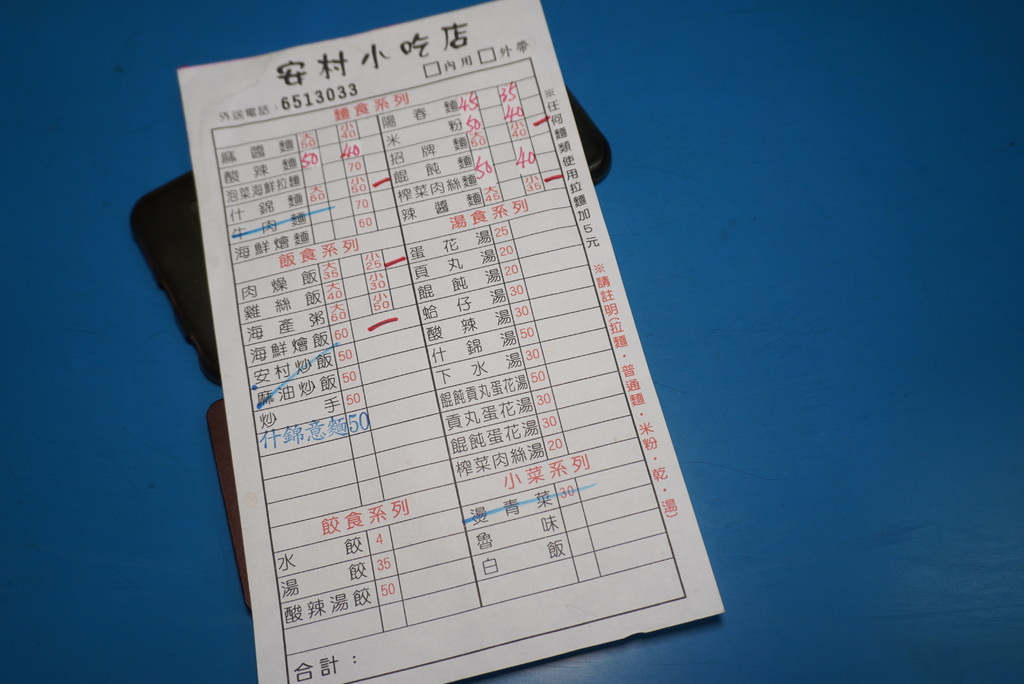 安村小吃店
外送電話：6513033 □內用 □外帶
麵食系列
麻醬麵 大50 小40
酸辣麵 50 40
泡菜海鮮拉麵 70
什錦麵 大60 小50
牛肉麵 70
海鮮燴麵 60
飯食系列
肉燥飯 大35 小25
雞絲飯 大40 小30
海產粥 大60 小50
海鮮燴飯 60
安村炒飯 50
麻油炒飯 50
炒手 50
什錦意麵50
餃食系列
水餃 4
湯餃 35
酸辣湯餃 50
合計：
陽春麵 45 35
米粉 50 40
招牌麵 大50 小40
餛飩麵
榨菜肉絲麵 50 40
辣醬麵 大45 小35
湯食系列
蛋花湯 25
貢丸湯 20
餛飩湯 20
蛤仔湯 30
酸辣湯 30
什錦湯 50
下水湯 30
餛飩貢丸蛋花湯 50
貢丸蛋花湯 30
餛飩蛋花湯 30
榨菜肉絲湯 20
小菜系列
燙青菜 30
魯味
白飯
※任何麵類使用拉麵加5元
※請註明(拉麵．普通麵．米粉．乾．湯)